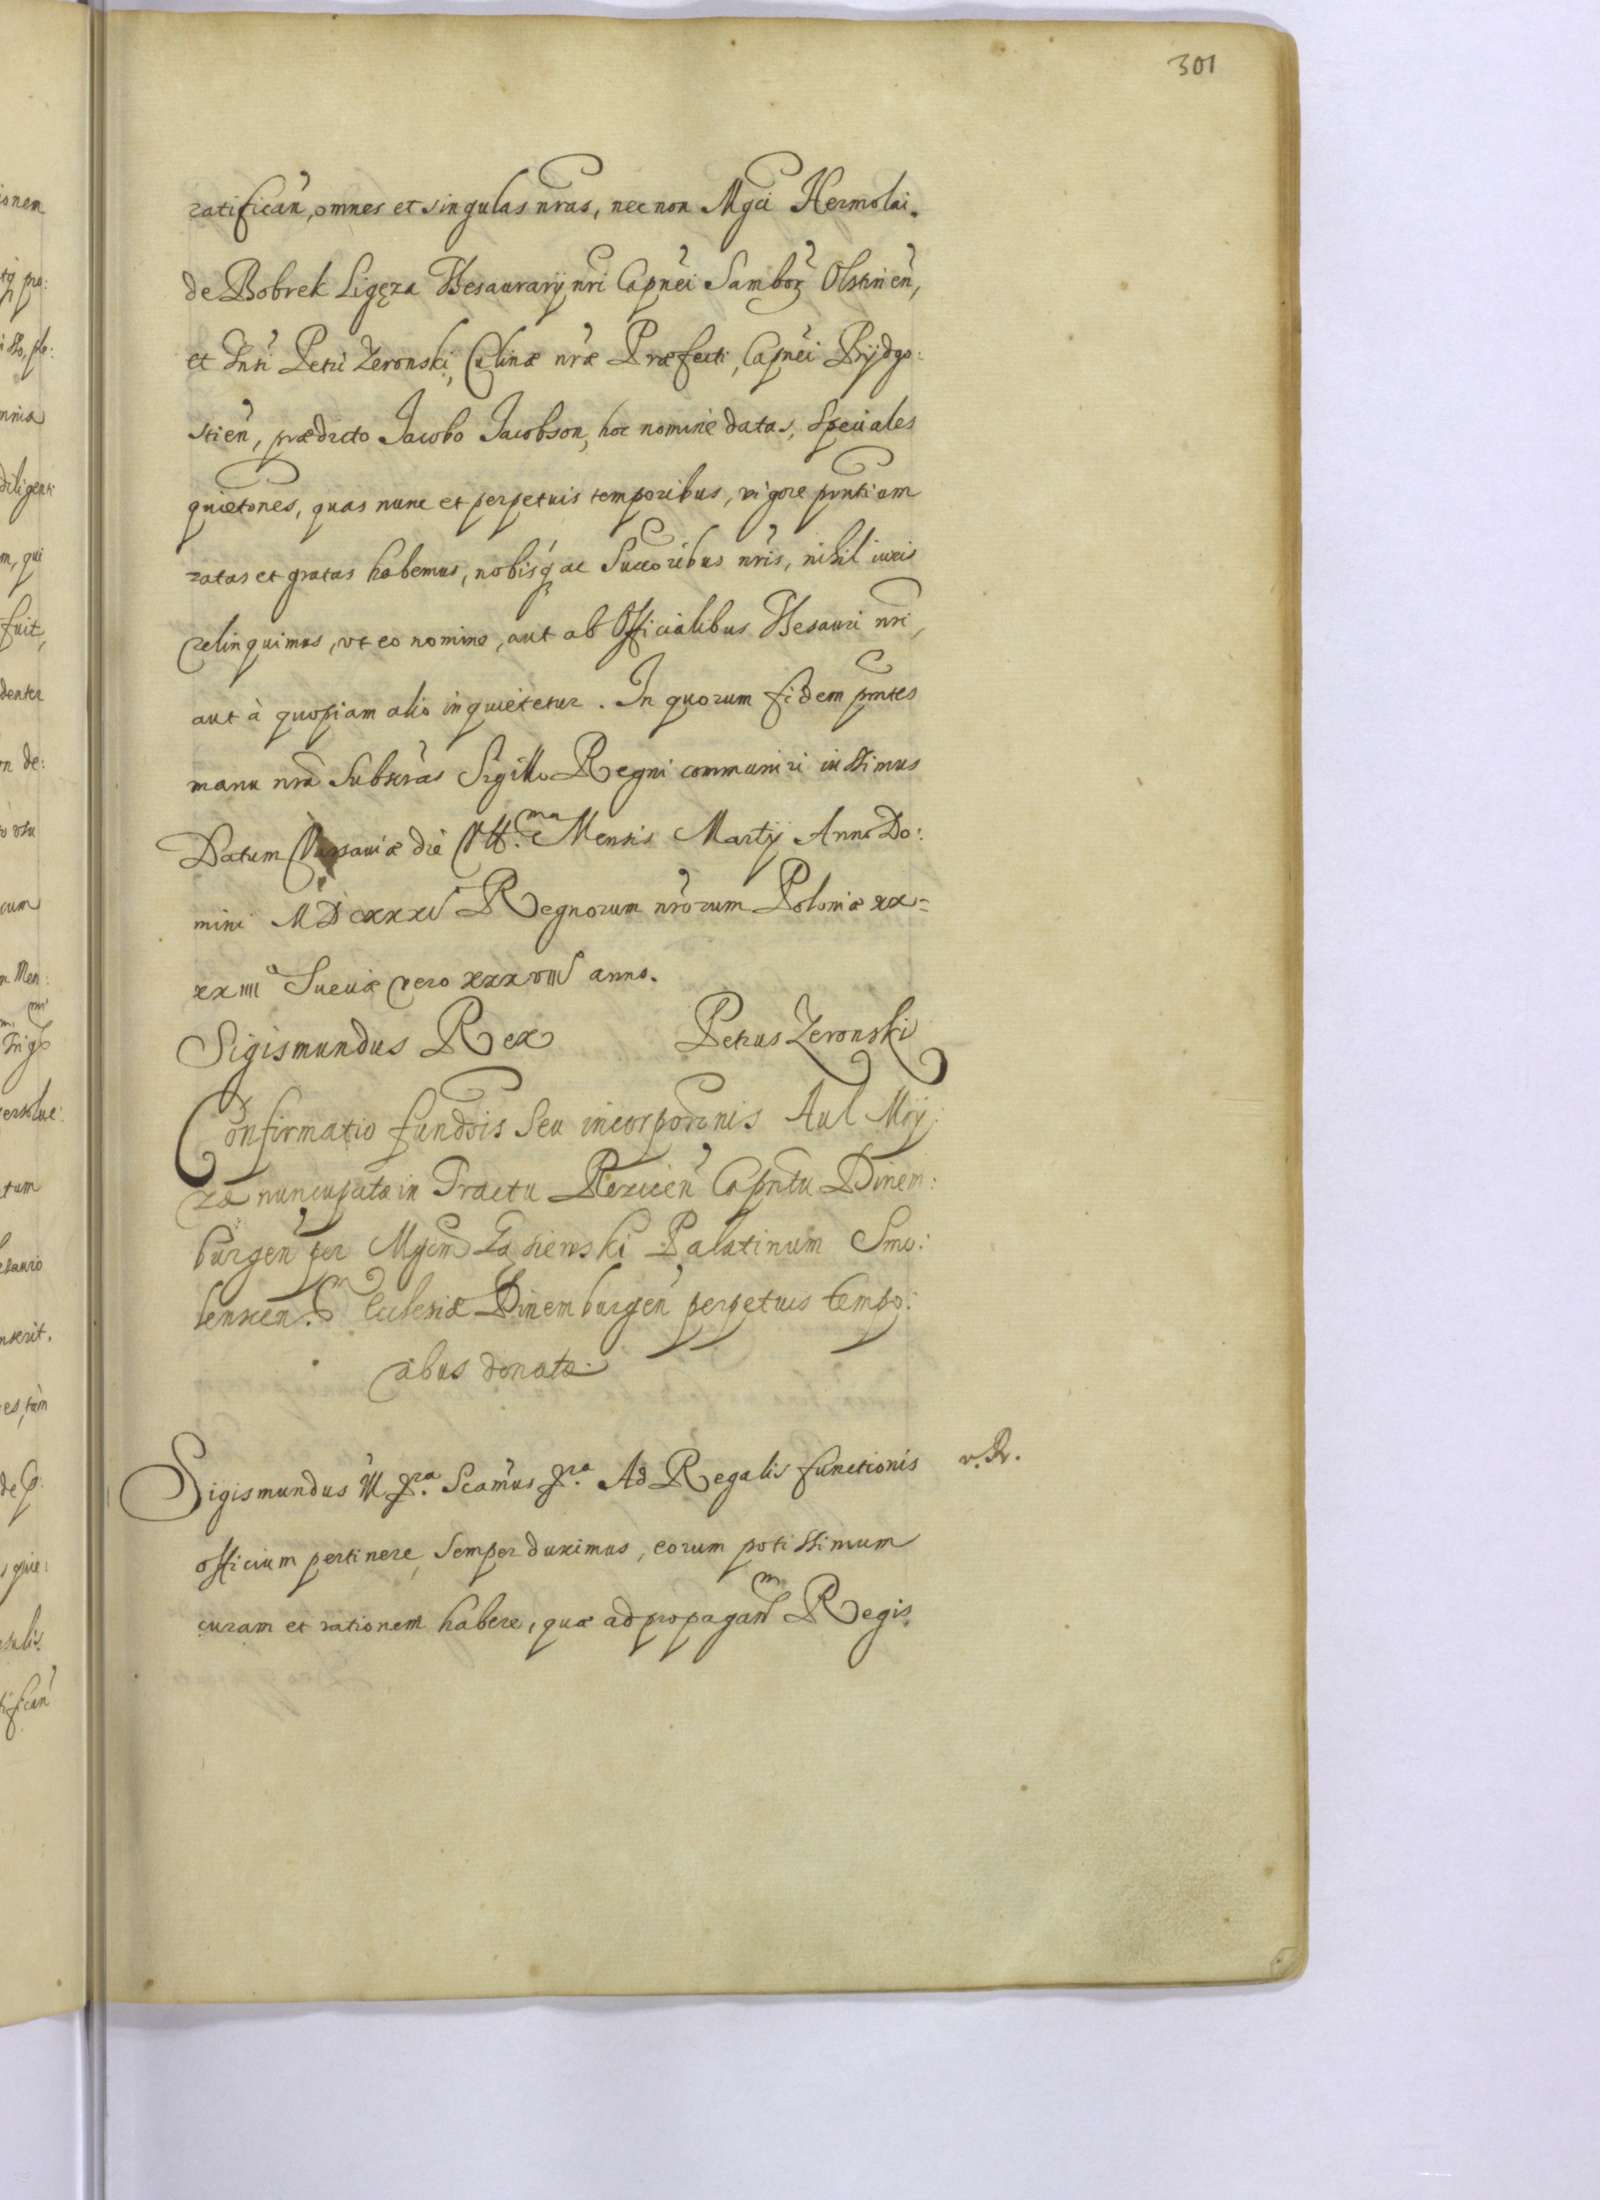 301
ratifican̄, omnes et singulas nr̃as, necnon Mgc̃i Hermolai.
de Bobrek Ligęza Thesaurarij nr̃i Capnèi Sambor̃ Olstinen̄,
et Gnr̃i Petri Zeronski, Culinæ nr̃æ Præfecti, Capnèi Bydgo:
stien̄, prædicto Jacobo Jacobson, hoc nomine datas, speciales
quietõnes, quas nunc et perpetuis temporibus, vigore pñtium
ratas et gratas habemus, nobisq ac Succõribus nr̃is, nihil iuris
relinquimus, vt eo nomine, aut ab Officialibus Thesauri nr̃i,
aut à quopiam alio inquietetur. In quorum fidem pñtes
manu nr̃a Subscr̃as Sigillo Regni communiri iussimus
Datum Varsauiæ die Vlt.ma Mensis Martij Anno Do:
mini MDCXXXI Regnorum nr̃orum Poloniæ xx=
xxiiii Sueciæ vero xxxviii anno.
Sigismundus Rex Petrus Zeronski
Confirmatio fundõis seu incorporõnis Aul Mỹ:
zæ nuncupatæ in Tractu Rezicen̄ Capñtu Dinem:
burgen̄ per Mgc̃m Gąsiewski Palatinum Smo:
lenscen. Ecclesiæ Dinemburgen̄ perpetuis tempo:
ribus donatæ.
Sigismundus III gra. Scamus gra. Ad Regalis functionis
officium pertinere, semper duximus, eorum potissimum
curam et rationem habere, quæ ad propagand̄m Regis.